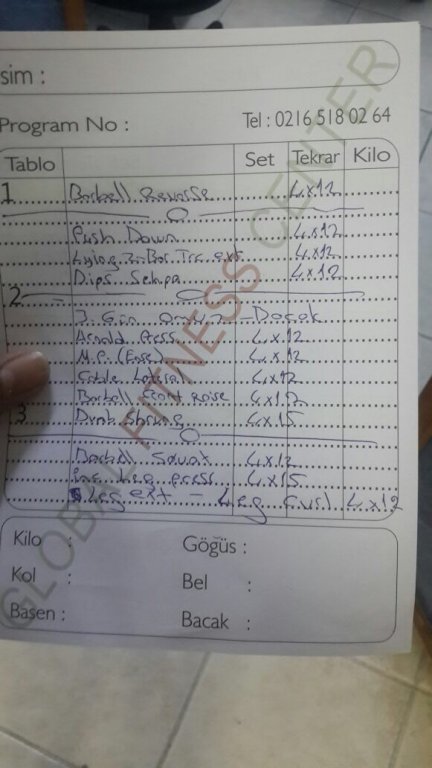 sim :
Program No : Tel : 0216 518 02 64
Tablo Set Tekrar Kilo
1 Barbell Reverse 4x12
Push Down 4x12
Z. Bar. Trc. ext. 4x12
Dips Sehpa 4x12
2
3. Gün omuz - Bacak
Arnold Press 4x12
M.P. 4x12
Cable Lateral 4x12
Barbell Front Raise 4x12
3 Shrug 4x15
Barbell Squat 4x12
Leg press 4x15
Leg ext - Leg Curl 4x12
Kilo : Gögüs :
Kol : Bel :
Basen : Bacak :
GLOBAL FITNESS CENTER